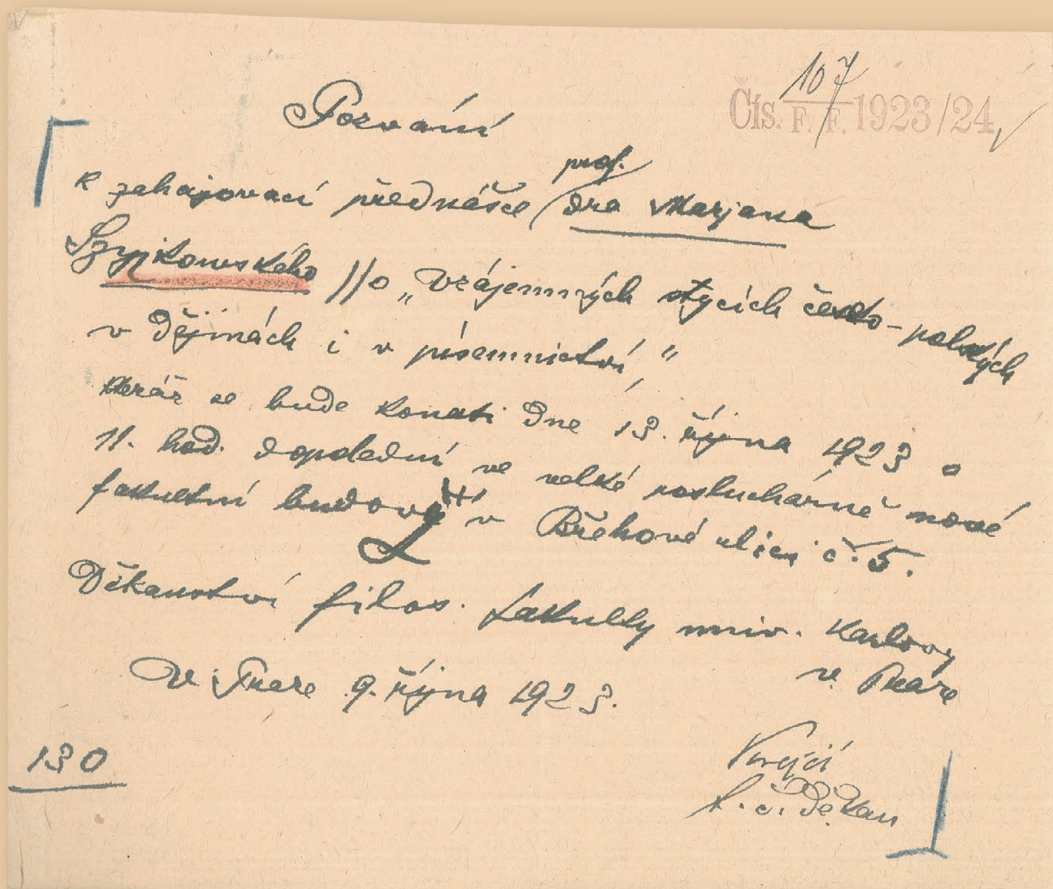 107
Čís. F. F. 1923/24
Pozvání
prof.
k zahajovací přednášce dra Marjana
Szyjkowského o „vzájemných stycích česko-polských
v dějinách i v písemnictví,“
kteráž se bude konati dne 13. října 1923 o
11. hod. dopolední ve velké posluchárně nové
fakultní budovy v Břehové ulici č. 5.
Děkanství filos. fakulty univ. Karlovy
v Praze
V Praze 9. října 1923.
130
t. č. děkan